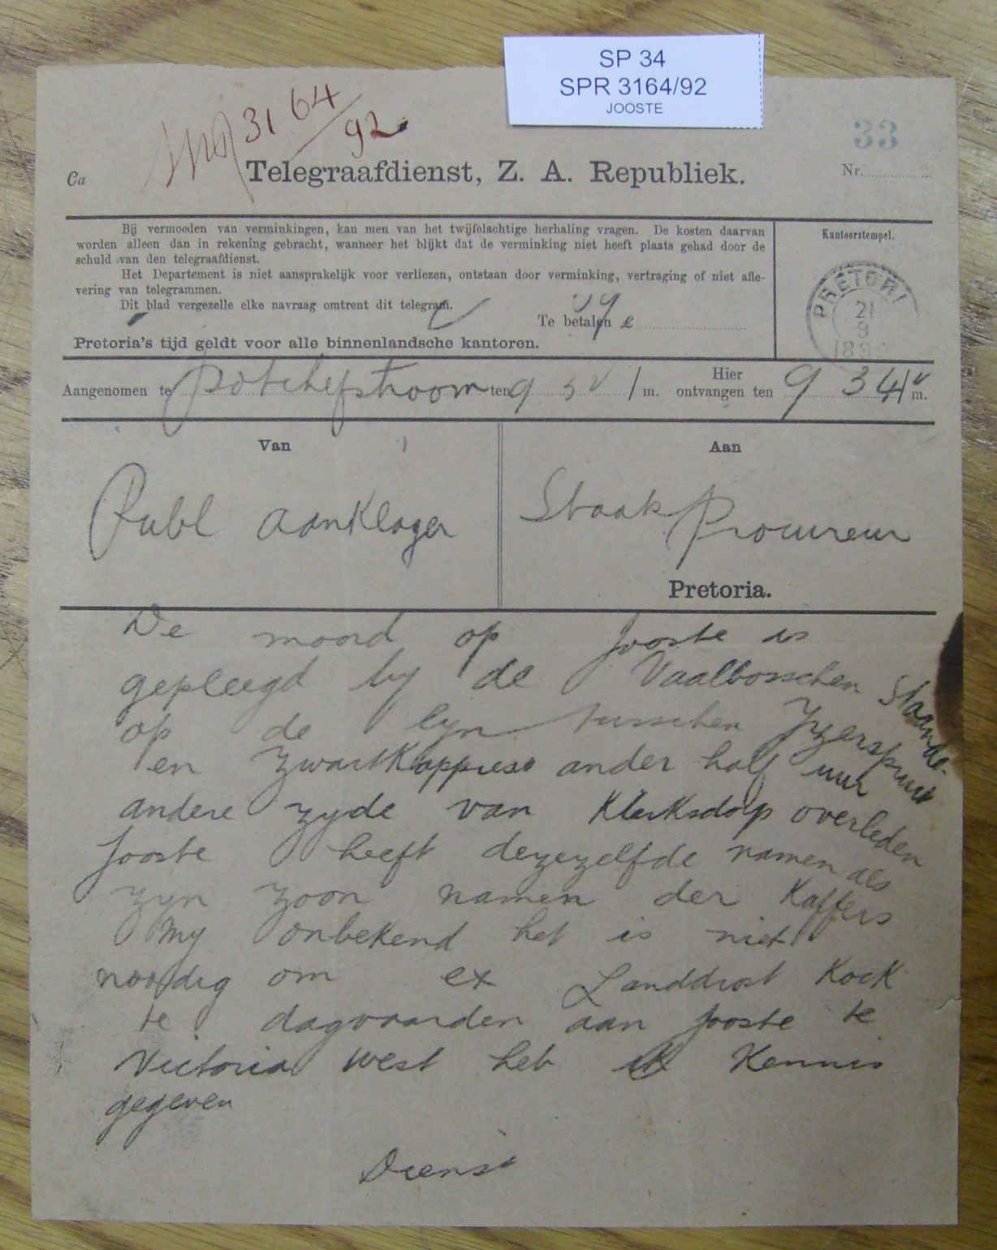 SP 34
SPR 3164/92
JOOSTE
3164/92
33
Ca
Telegraafdienst, Z. A. Republiek.
Nr.
Bij vermoeden van verminkingen, kan men van het twijfelachtige herhaling vragen. De kosten daarvan
worden alleen dan in rekening gebracht, wanneer het blijkt dat de verminking niet heeft plaats gehad door de
schuld van den telegraafdienst.
Het Departement is niet aansprakelijk voor verliezen, ontstaan door verminking, vertraging of niet afle-
vering van telegrammen.
Dit blad vergezelle elke navraag omtrent dit telegram.
Te betalen £
Pretoria's tijd geldt voor alle binnenlandsche kantoren.
Kantoorstempel.
PRETORI
21
9
189
Aangenomen te Potchefstroom ten 9 m. Hier ontvangen ten 9 34 m.
Van
Aan
Publ aanklager
Staats Procureur
Pretoria.
De moord op Jooste is
gepleegd by de Vaalbosschen staande
op de lyn tusschen Yzerspruit
en Zwartkoppies ander half uur
andere zyde van Klerksdorp overleden
Jooste heeft dezezelfde namen als
zyn zoon namen der Kaffers
my onbekend het is niet
noodig om ex Landdrost Kock
te dagvaarden aan Jooste te
Victoria West heb ik Kennis
gegeven
Dienst